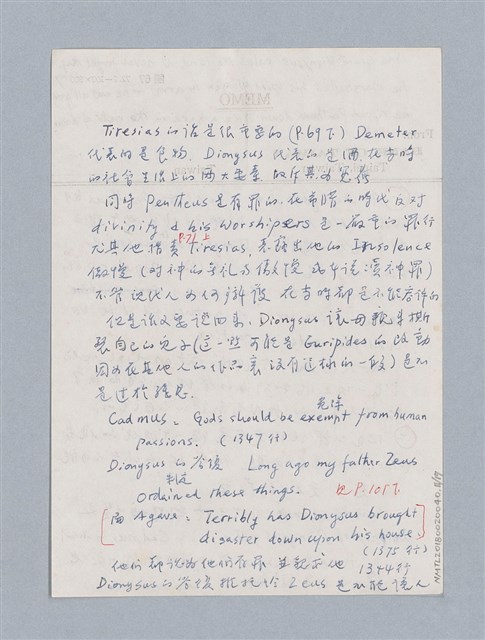 MEMO
Tiresias 的話是很重要的 (P.69下) Demeter
代表的是食物, Dionysus 代表的是酒, 在當時
的社會生活上的兩大要素
同時 Pentheus 是有罪的. 在希臘的時代反對
divinity & his worshipers 是一嚴重的罪行
P.71上
尤其他指責 Tiresias, 表露出他的 Insolence
傲慢 (對神的無礼與傲慢 或午說瀆神罪)
不管現代人如何辯護 在當時卻是不能容許的
但是話又要說回來, Dionysus 讓母親來撕
裂自己的兒子(這一點可能是 Euripides 的改動
因為在其他人的作品裏沒有這樣的一段) 是不
是過於殘忍
免除
Cadmus: Gods should be exempt from human
passions. (1347行)
Dionysus 的答復 Long ago my father Zeus
制定
ordained these things. 見P.101下
而 Agave: Terribly has Dionysus brought
disaster down upon his house.
(1375行)
他們都說 他們有罪 1344行
Dionysus 的答復推托給 Zeus 是不能讓人
NMTL20180020040, 11/19